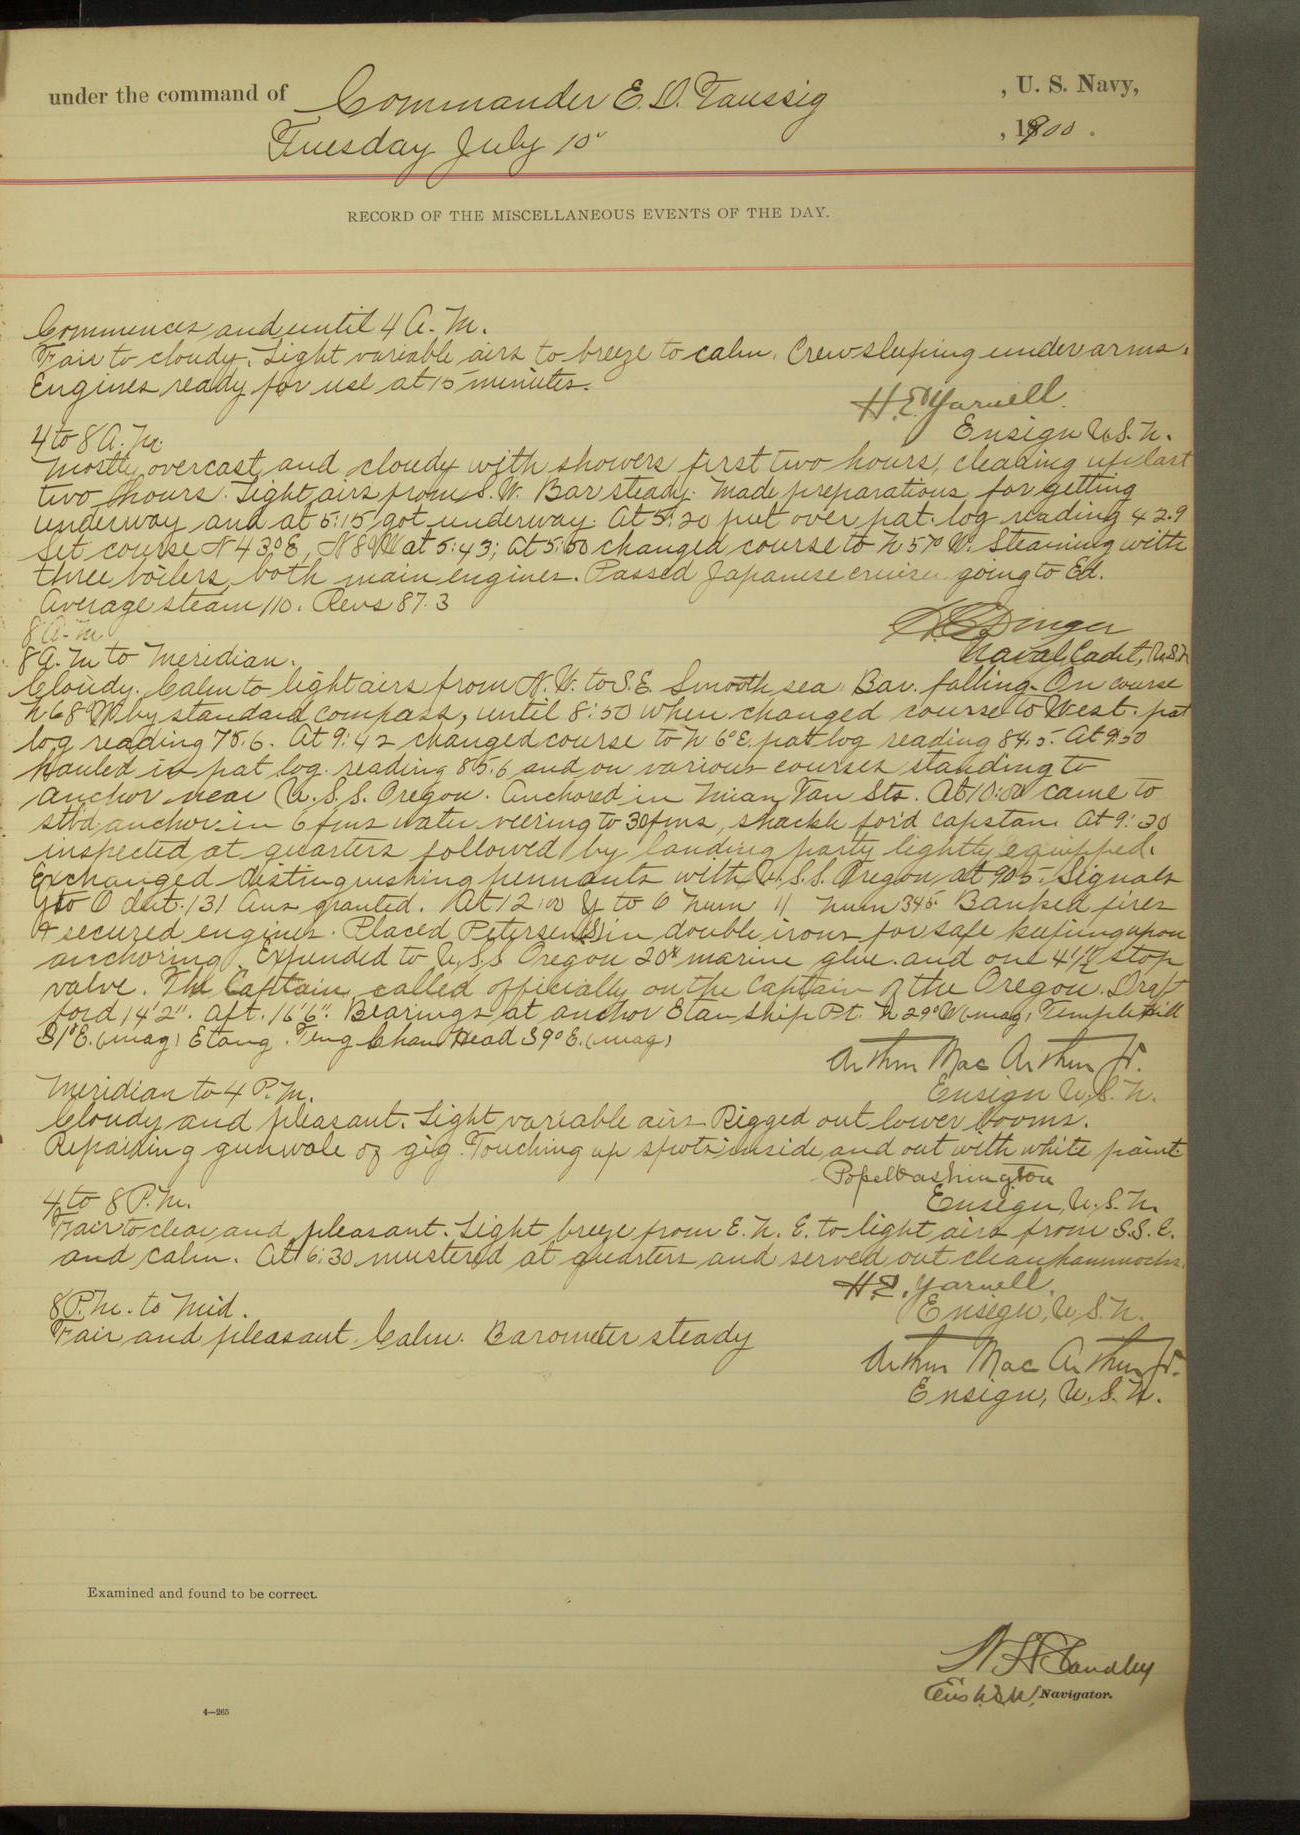 under the command of Commander E. D. Taussig , U. S. Navy,
Tuesday July 10" , 1900 .
RECORD OF THE MISCELLANEOUS EVENTS OF THE DAY.
Commences and until 4 A. M.
Fair to cloudy. Light variable airs to breeze to calm. Crew sleeping under arms.
Engines ready for use at 15 minutes.
H. E. Yarnell.
Ensign U.S.N.
4 to 8 A. M.
Mostly overcast and cloudy with showers first two hours, clearing up last
two hours. Light airs from S. W. Bar steady. Made preparations for getting
underway and at 5:15 got underway. At 5:20 put over pat. log reading 42.9
Set course N 43° E, N 8 W at 5:43; at 5:50 changed course to N 57° W. Steaming with
three boilers, both main engines. Passed Japanese cruiser going to Ed.
Average steam 110. Revs 87.3
8 A. M
Dinger
Naval Cadet, U.S.N
8 A. M to Meridian.
Cloudy. Calm to light airs from N. W. to S. E. Smooth sea. Bar. falling. On course
N 68 W by standard compass, until 8:50 when changed course to West. pat
log reading 75.6. At 9:42 changed course to N 6° E. pat log reading 84.5. At 9:50
hauled in pat log. reading 85.6 and on various courses standing to
anchor near U.S.S. Oregon. Anchored in Mian Tau Sts. At 10:00 came to
stbd. anchor in 6 fms water veering to 30 fms, shackle for'd capstan. At 9:30
inspected at quarters followed by landing party lightly equipped.
Exchanged distinguishing pennants with U.S.S. Oregon at 905. Signals
Y to O dict. 131 Ans granted. At 12:00 Y to O Num 11 Num 345. Banked fires
& secured engines. Placed Petersen (S) in double irons for safe keeping upon
anchoring. Expended to U.S.S Oregon 20# marine glue. and one 4 1/2" stop
valve. The Captain called officially on the Captain of the Oregon. Draft
ford 14'2". Aft. 16'6". Bearings at anchor Etau Ship Pt. N 29° W (mag) Temple Hill
S 1° E. (mag) Etang. Teng Chau Head S 9° E. (mag)
Arthur Mac Arthur Jr.
Ensign U.S.N.
Meridian to 4 P. M.
Cloudy and pleasant. Light variable airs. Rigged out lower booms.
Repairing gunwale of gig. Touching up spots inside and out with white paint.
Pope Washington
Ensign, U.S.N.
4 to 8 P. M.
Fair to clear and pleasant. Light breeze from E. N. E. to light airs from S. S. E.
and calm. At 6:30 mustered at quarters and served out clean hammocks.
H. E. Yarnell.
Ensign, U.S.N.
8 P. M. to Mid.
Fair and pleasant. Calm. Barometer steady
Arthur Mac Arthur Jr.
Ensign, U.S.N.
Examined and found to be correct.
Standley
Navigator.
4—265